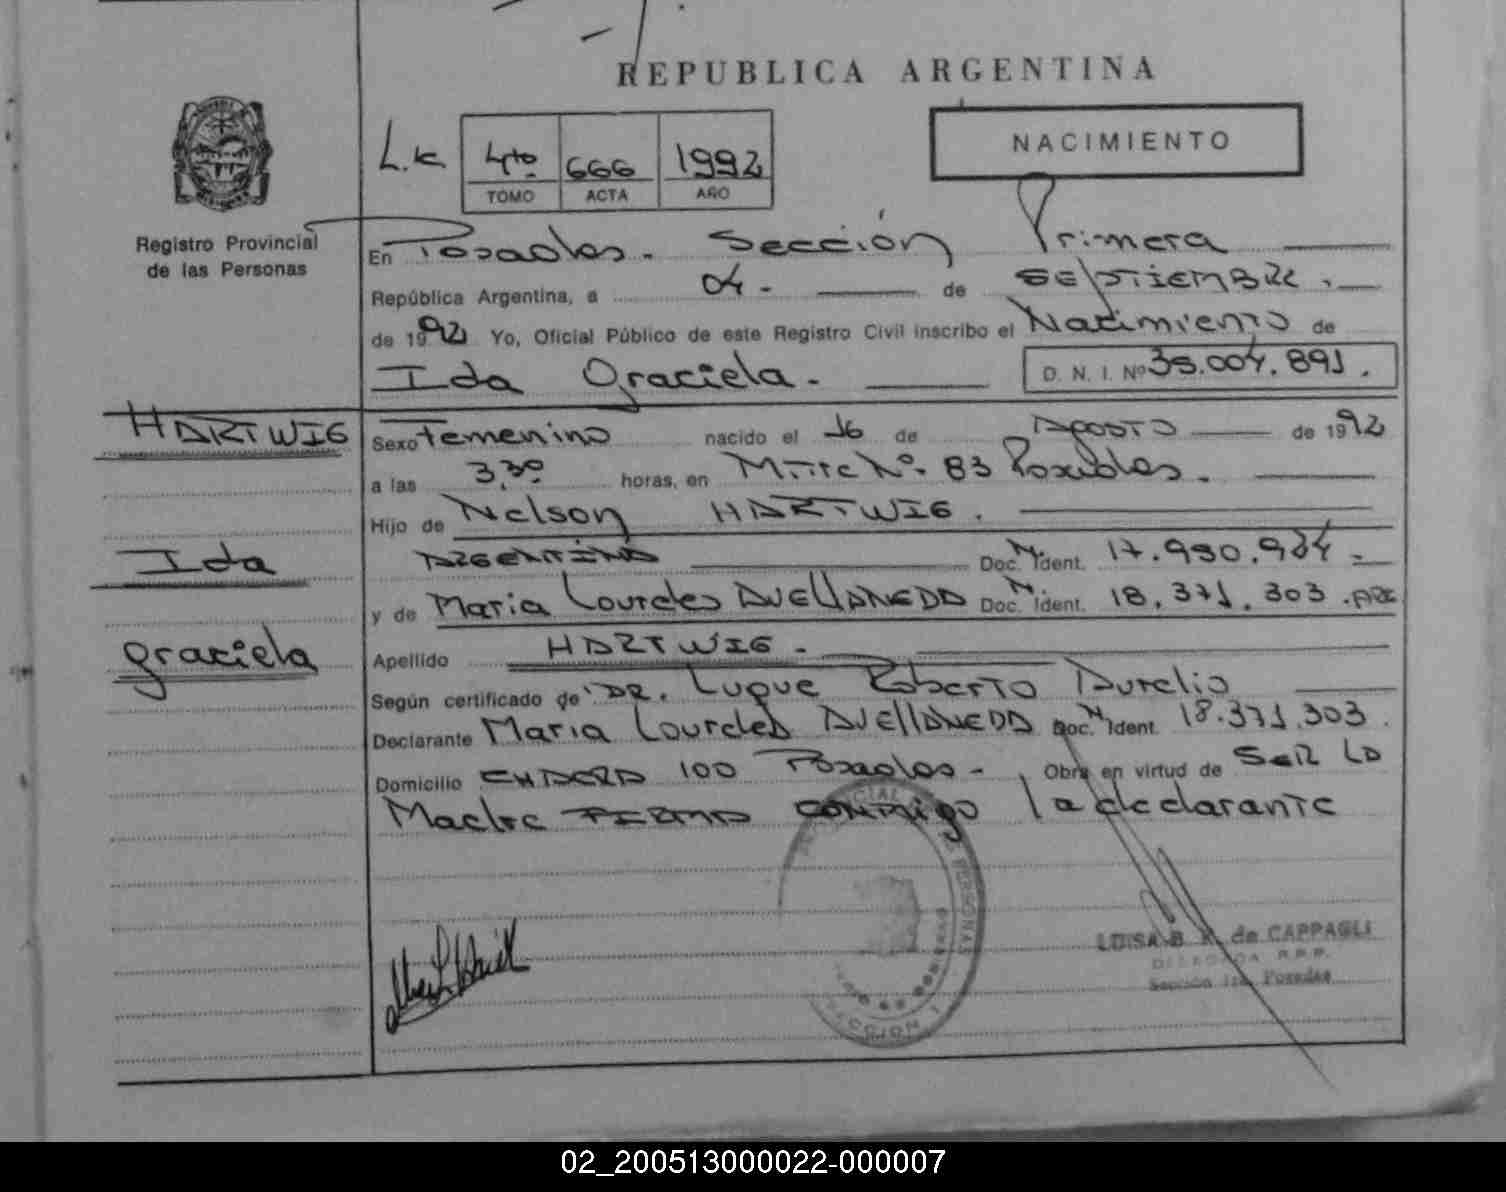 REPUBLICA ARGENTINA
L.K 4to 666 1992
TOMO ACTA AÑO
NACIMIENTO
Registro Provincial
de las Personas
En Posadas. Sección Primera
República Argentina, a 04. de SEPTIEMBRE.
de 1992 Yo, Oficial Público de este Registro Civil inscribo el Nacimiento de
Ida Graciela.
D. N. I. Nº 35.004.891.
HARTWIG
Ida
graciela
Sexo Femenino nacido el 16 de Agosto de 1992
a las 3,30 horas, en Mitre Nº. 83 Posadas.
Hijo de Nelson HARTWIG.
ARGENTINO Doc. N. Ident. 17.950.984
y de Maria Lourdes AVEllANEDA Doc. N. Ident. 18.371.303 .ARG
Apellido HARTWIG.
Según certificado de DR. Luque Roberto Aurelio
Declarante Maria Lourdes AVEllANEDA Doc. N. Ident. 18.371.303.
Domicilio 100 Posadas. Obra en virtud de SER LA
Madre FIRMA CONMigo la declarante
LUISA B. de CAPPAGLI
DELEGADA R.P.P.
Sección 1ra. Posadas
SECCION 1
02_200513000022-000007